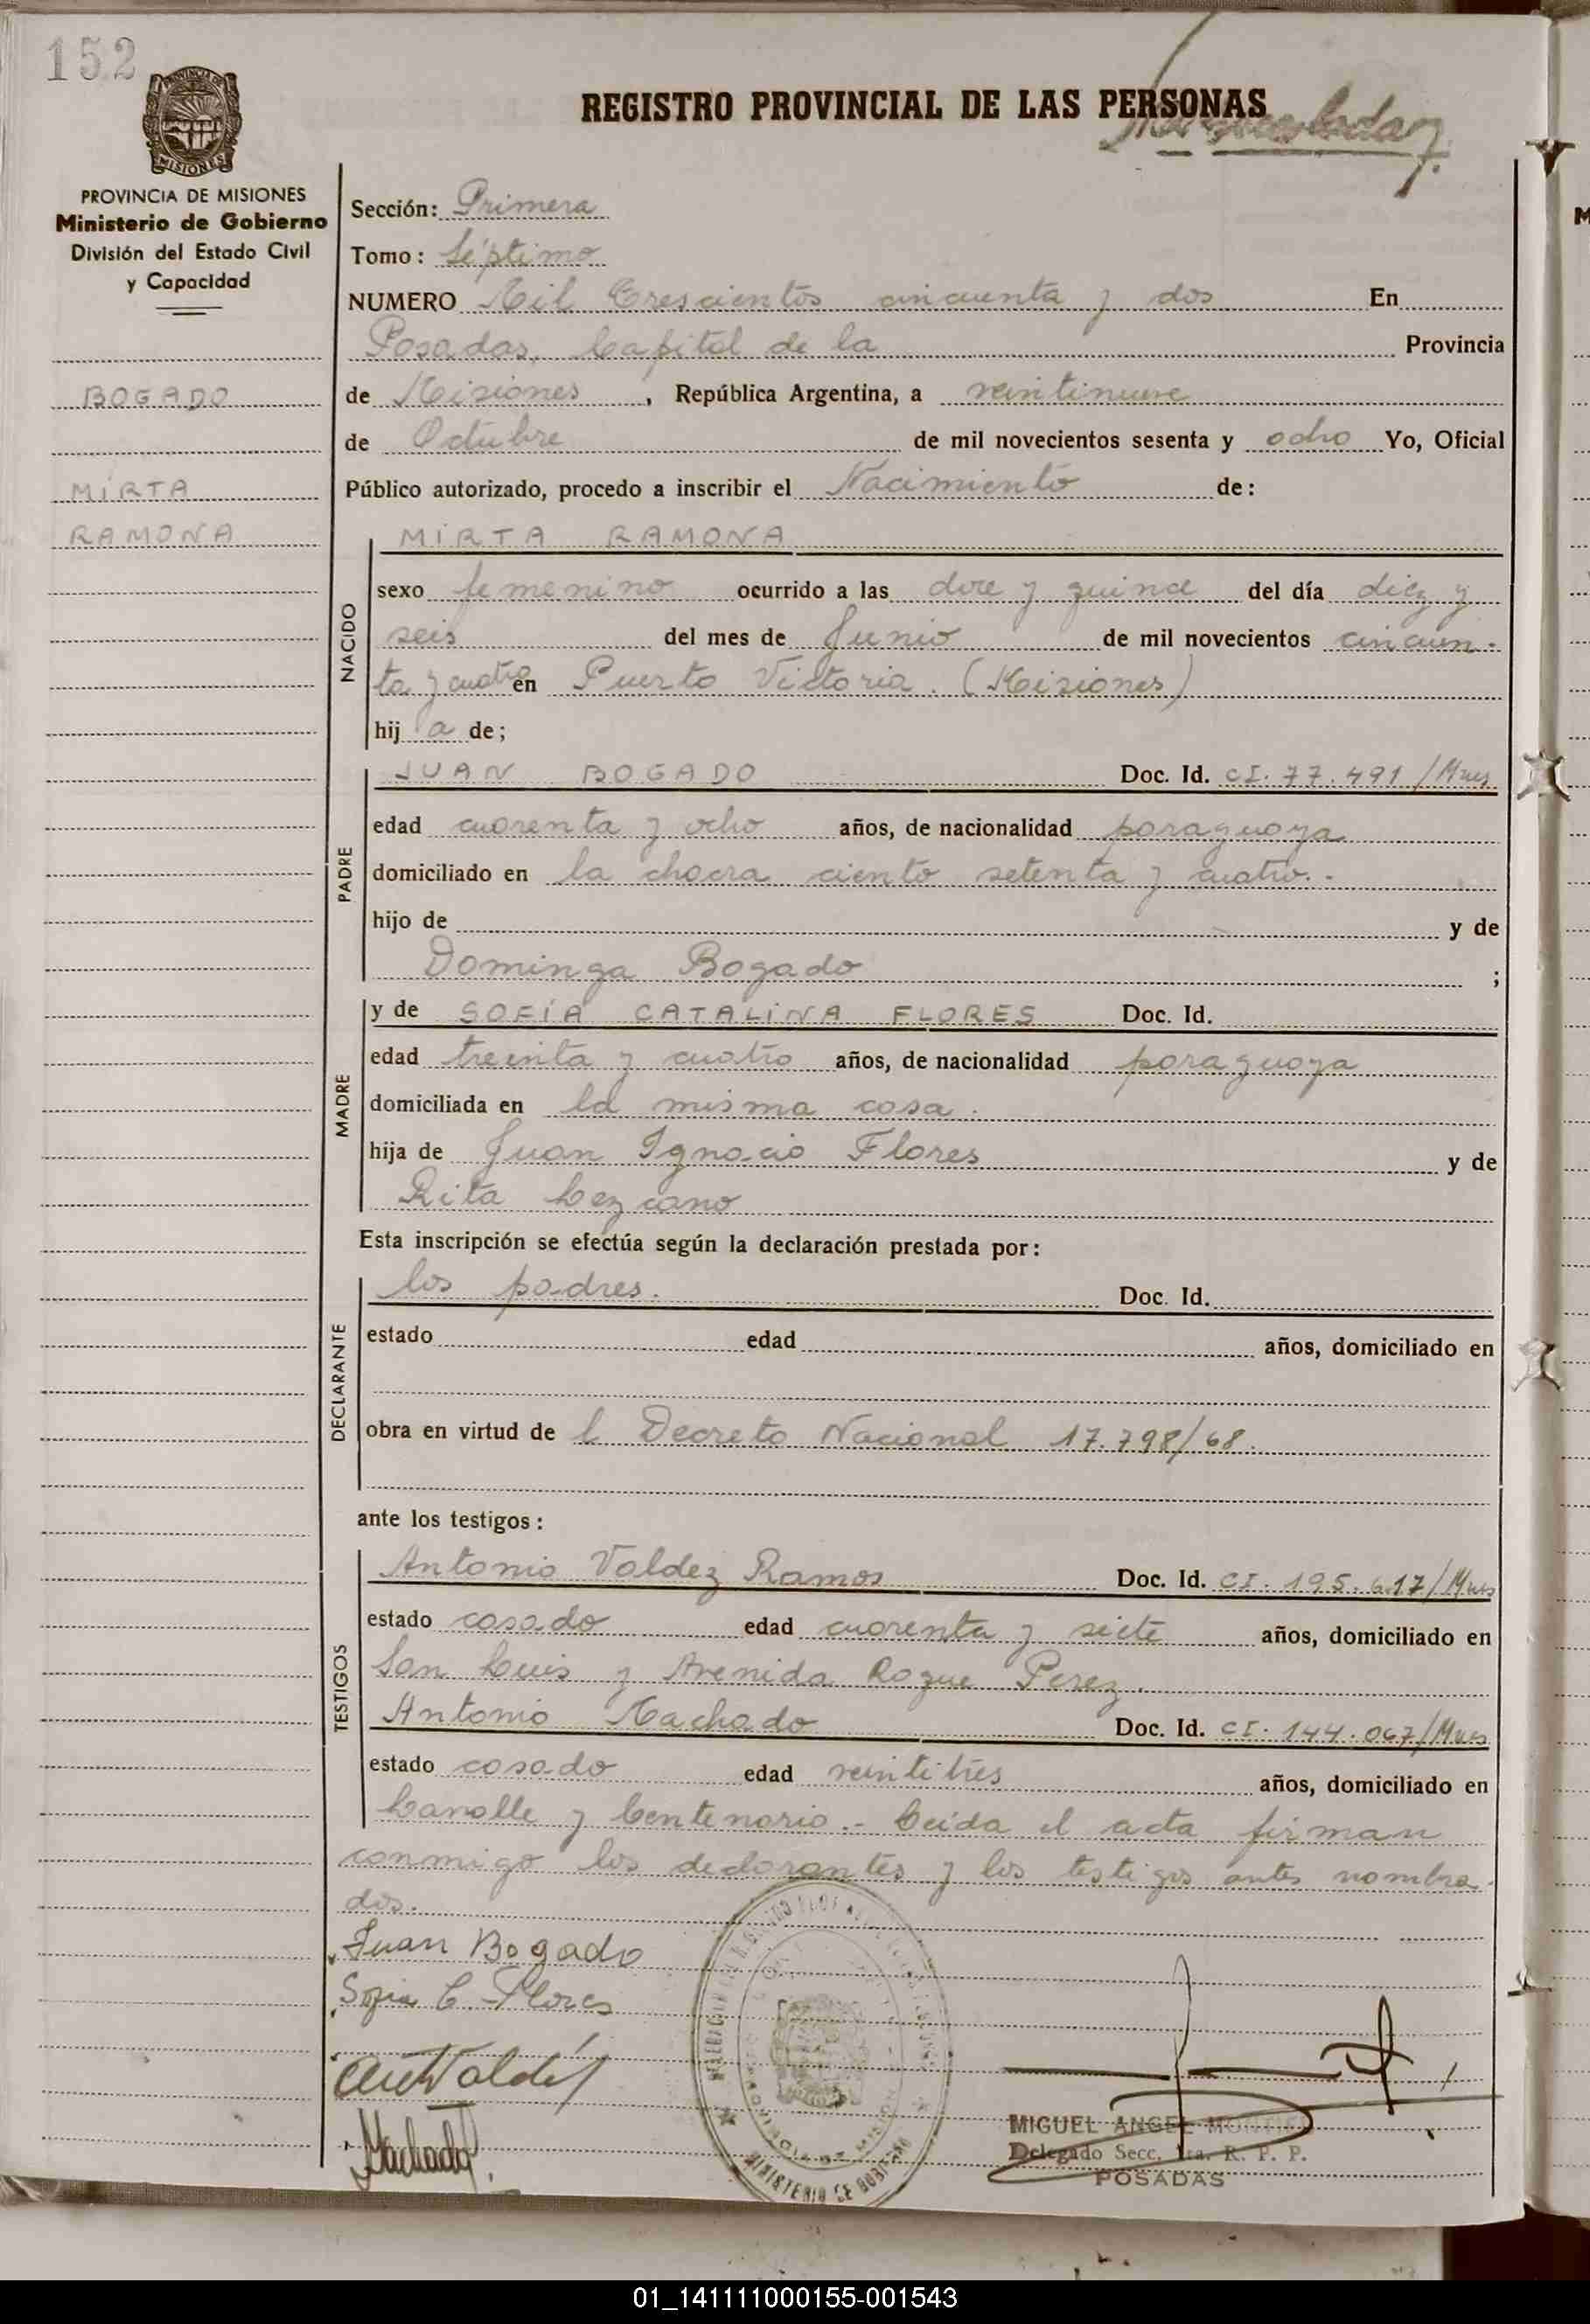 152
REGISTRO PROVINCIAL DE LAS PERSONAS
PROVINCIA DE MISIONES
Ministerio de Gobierno
División del Estado Civil
y Capacidad
BOGADO
MIRTA
RAMONA
Sección: Primera
Tomo: Séptimo
NUMERO Mil Trescientos cincuenta y dos En
Posadas, Capital de la Provincia
de Misiones, República Argentina, a veintinueve
de Octubre de mil novecientos sesenta y ocho Yo, Oficial
Público autorizado, procedo a inscribir el Nacimiento de:
NACIDO
MIRTA RAMONA
sexo femenino ocurrido a las doce y quince del día diez y
seis del mes de Junio de mil novecientos cincuen-
ta y cuatro en Puerto Victoria. (Misiones)
hij a de;
PADRE
JUAN BOGADO Doc. Id. CI. 77.491/Mnes
edad cuarenta y ocho años, de nacionalidad paraguaya
domiciliado en la chacra ciento setenta y cuatro.-
hijo de y de
Dominga Bogado ;
MADRE
y de SOFÍA CATALINA FLORES Doc. Id.
edad treinta y cuatro años, de nacionalidad paraguaya
domiciliada en la misma casa.
hija de Juan Ignacio Flores y de
Rita Lezcano
Esta inscripción se efectúa según la declaración prestada por:
DECLARANTE
los padres. Doc. Id.
estado edad años, domiciliado en
obra en virtud de l Decreto Nacional 17.798/68.
ante los testigos:
TESTIGOS
Antonio Valdez Ramos Doc. Id. CI. 195.617/Mnes
estado casado edad cuarenta y siete años, domiciliado en
San Luis y Avenida Roque Perez.
Antonio Machado Doc. Id. CI. 144.067/Mnes
estado casado edad veintitrés años, domiciliado en
Lavalle y Centenario.- Leida el acta firman
conmigo los declarantes y los testigos antes nombra-
dos.
Juan Bogado
Sofia C. Flores
Machado
MINISTERIO DE GOBIERNO
MIGUEL ANGEL
Delegado Secc. 1ra. R. P. P.
POSADAS
01_141111000155-001543